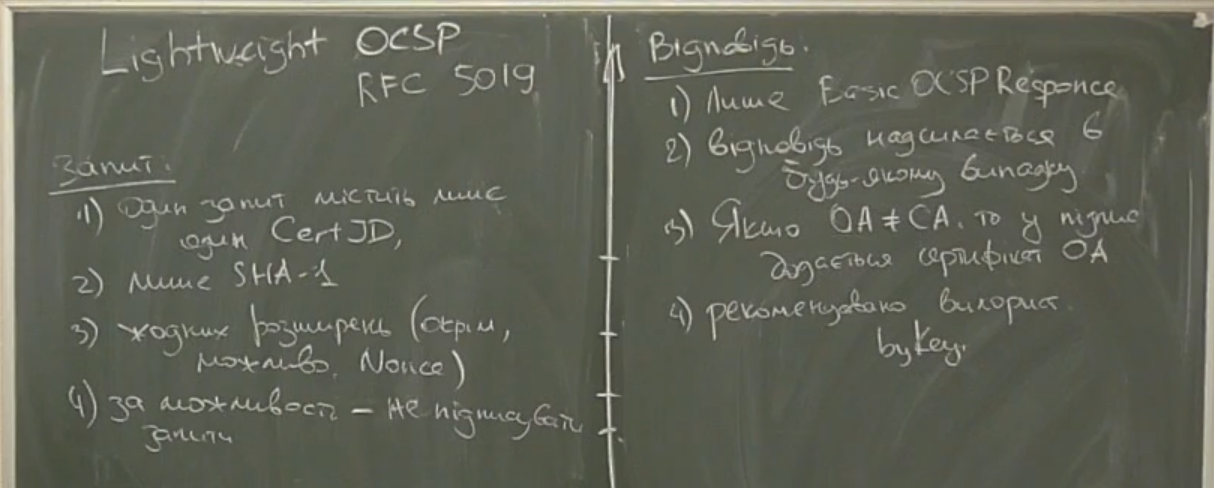 Lightweight OCSP
RFC 5019
Запит:
1) Один запит містить лише
один CertID,
2) лише SHA-1
3) жодних розширень (окрім,
можливо, Nonce)
4) за можливості – не підписувати
запити
Відповідь.
1) Лише Basic OCSP Responce
2) відповідь надсилається в
будь-якому випадку
3) Якщо OA ≠ CA, то у підпис
додається сертифікат OA
4) рекомендовано використ.
byKey.